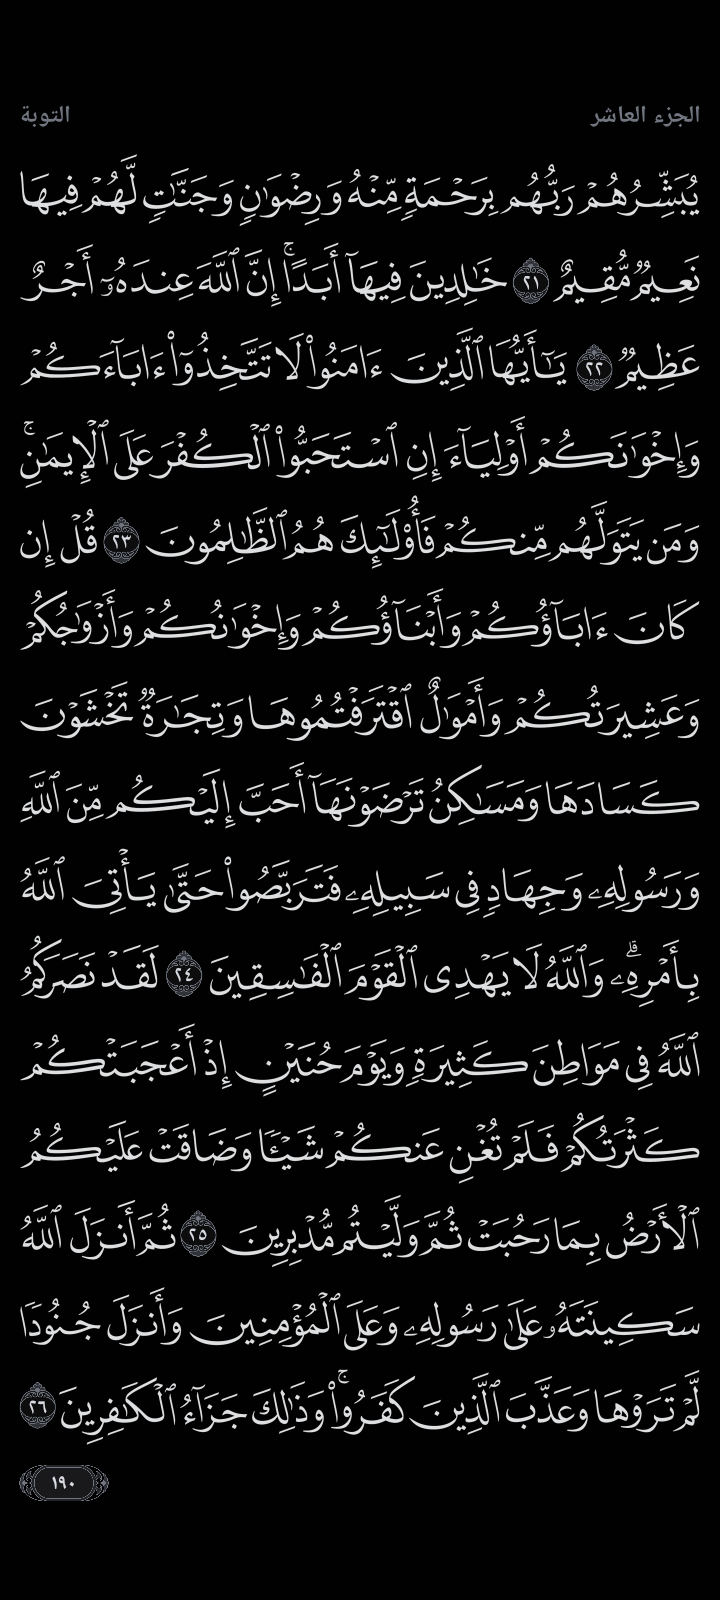 الجزء العاشر
التوبة
يُبَشِّرُهُمْ رَبُّهُم بِرَحْمَةٍ مِّنْهُ وَرِضْوَٰنٍ وَجَنَّـٰتٍ لَّهُمْ فِيهَا
نَعِيمٌ مُّقِيمٌ ٢١ خَـٰلِدِينَ فِيهَآ أَبَدًا ۚ إِنَّ ٱللَّهَ عِندَهُۥٓ أَجْرٌ
عَظِيمٌ ٢٢ يَـٰٓأَيُّهَا ٱلَّذِينَ ءَامَنُوا۟ لَا تَتَّخِذُوٓا۟ ءَابَآءَكُمْ
وَإِخْوَٰنَكُمْ أَوْلِيَآءَ إِنِ ٱسْتَحَبُّوا۟ ٱلْكُفْرَ عَلَى ٱلْإِيمَـٰنِ ۚ
وَمَن يَتَوَلَّهُم مِّنكُمْ فَأُو۟لَـٰٓئِكَ هُمُ ٱلظَّـٰلِمُونَ ٢٣ قُلْ إِن
كَانَ ءَابَآؤُكُمْ وَأَبْنَآؤُكُمْ وَإِخْوَٰنُكُمْ وَأَزْوَٰجُكُمْ
وَعَشِيرَتُكُمْ وَأَمْوَٰلٌ ٱقْتَرَفْتُمُوهَا وَتِجَـٰرَةٌ تَخْشَوْنَ
كَسَادَهَا وَمَسَـٰكِنُ تَرْضَوْنَهَآ أَحَبَّ إِلَيْكُم مِّنَ ٱللَّهِ
وَرَسُولِهِۦ وَجِهَادٍ فِى سَبِيلِهِۦ فَتَرَبَّصُوا۟ حَتَّىٰ يَأْتِىَ ٱللَّهُ
بِأَمْرِهِۦ ۗ وَٱللَّهُ لَا يَهْدِى ٱلْقَوْمَ ٱلْفَـٰسِقِينَ ٢٤ لَقَدْ نَصَرَكُمُ
ٱللَّهُ فِى مَوَاطِنَ كَثِيرَةٍ وَيَوْمَ حُنَيْنٍ إِذْ أَعْجَبَتْكُمْ
كَثْرَتُكُمْ فَلَمْ تُغْنِ عَنكُمْ شَيْـًٔا وَضَاقَتْ عَلَيْكُمُ
ٱلْأَرْضُ بِمَا رَحُبَتْ ثُمَّ وَلَّيْتُم مُّدْبِرِينَ ٢٥ ثُمَّ أَنزَلَ ٱللَّهُ
سَكِينَتَهُۥ عَلَىٰ رَسُولِهِۦ وَعَلَى ٱلْمُؤْمِنِينَ وَأَنزَلَ جُنُودًا
لَّمْ تَرَوْهَا وَعَذَّبَ ٱلَّذِينَ كَفَرُوا۟ ۚ وَذَٰلِكَ جَزَآءُ ٱلْكَـٰفِرِينَ ٢٦
١٩٠